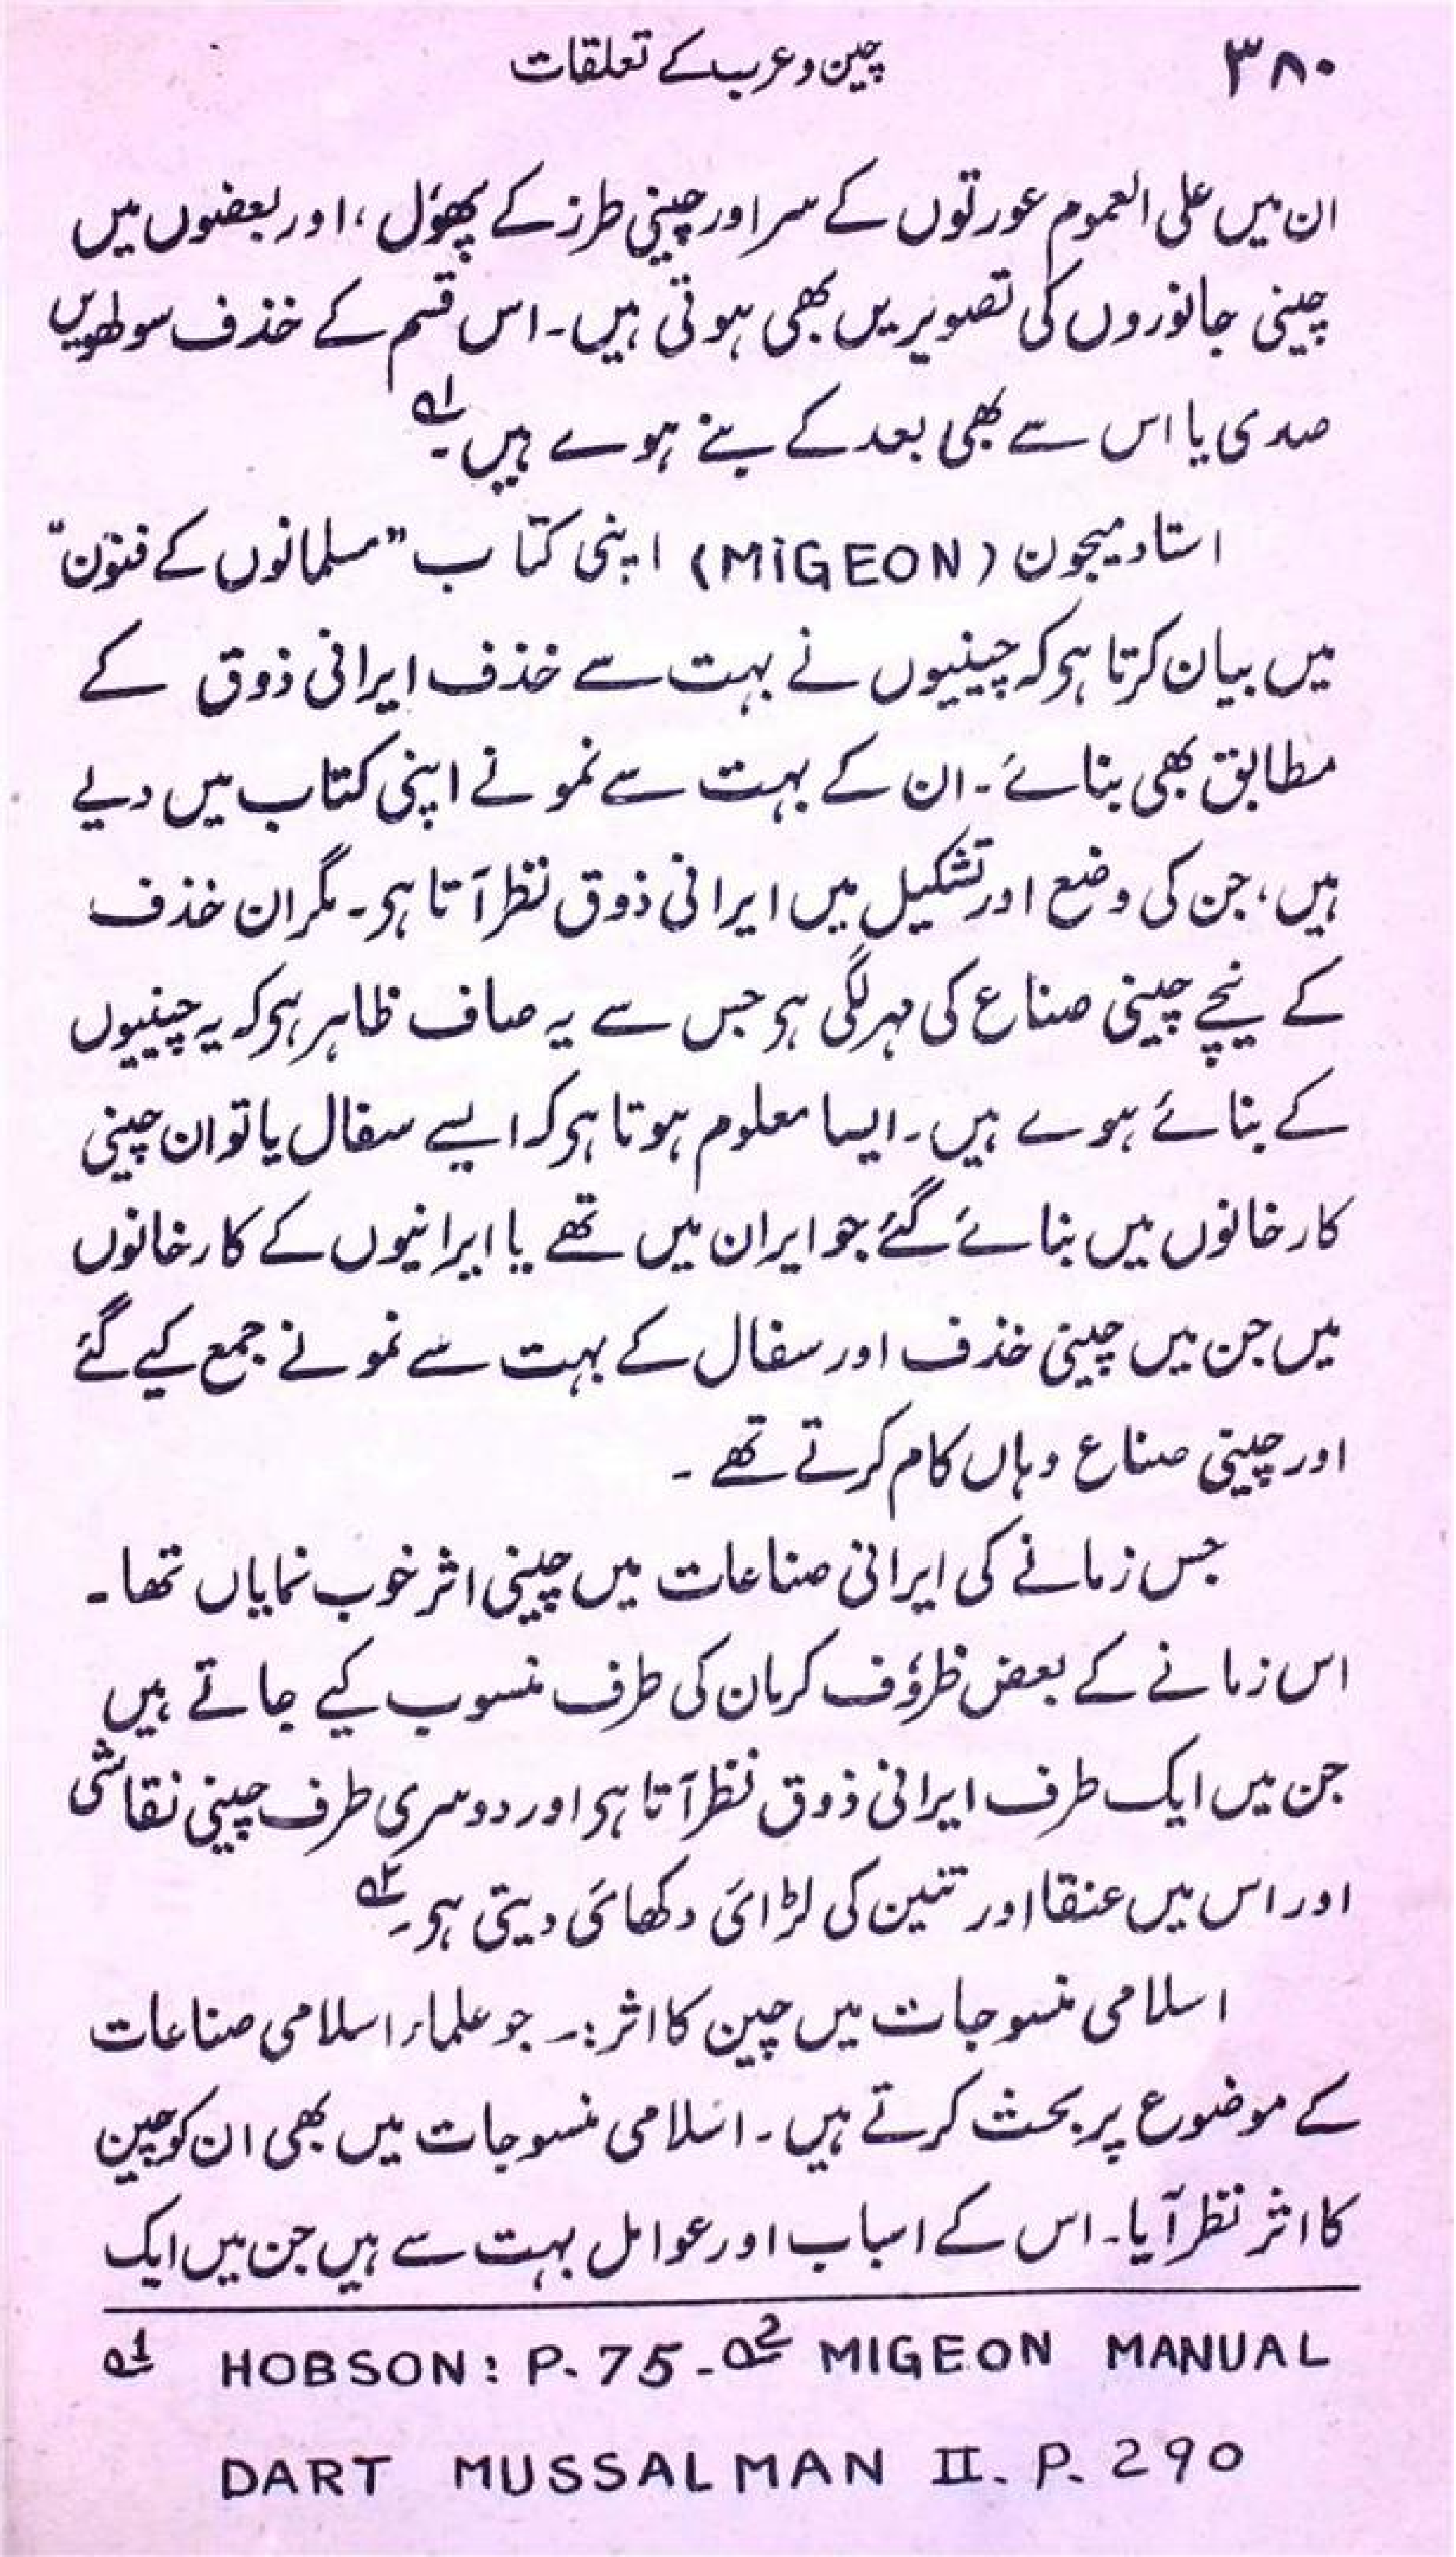 ۳۸۰ چین و عرب کے تعلقات
ان میں علی العموم عورتوں کے سر اور چینی طرز کے پھوٗل، اور بعضوں میں
چینی جانوروں کی تصویریں بھی ہوتی ہیں۔ اس قسم کے خذف سولھویں
صدی یا اس سے بھی بعد کے بنے ہوے ہیں۔؎۱
استاد میجون (MiGEON) اپنی کتاب ”مسلمانوں کے فنوٗن“
میں بیان کرتا ہو کہ چینیوں نے بہت سے خذف ایرانی ذوق کے
مطابق بھی بنائے۔ ان کے بہت سے نمونے اپنی کتاب میں دیے
ہیں، جن کی وضع اور تشکیل میں ایرانی ذوق نظر آتا ہو۔ مگر ان خذف
کے نیچے چینی صناع کی مہر لگی ہو جس سے یہ صاف ظاہر ہو کہ یہ چینیوں
کے بنائے ہوے ہیں۔ ایسا معلوم ہوتا ہو کہ ایسے سفال یا تو ان چینی
کارخانوں میں بنائے گئے جو ایران میں تھے یا ایرانیوں کے کارخانوں
میں جن میں چینی خذف اور سفال کے بہت سے نمونے جمع کیے گئے
اور چینی صناع وہاں کام کرتے تھے۔
جس زمانے کی ایرانی صناعات میں چینی اثر خوب نمایاں تھا۔
اس زمانے کے بعض ظروٗف کرمان کی طرف منسوب کیے جاتے ہیں
جن میں ایک طرف ایرانی ذوق نظر آتا ہو اور دوسری طرف چینی نقاشی
اور اس میں عنقا اور تنین کی لڑائی دکھائی دیتی ہو۔؎۲
اسلامی منسوجات میں چین کا اثر:۔ جو علماء اسلامی صناعات
کے موضوع پر بحث کرتے ہیں۔ اسلامی منسوجات میں بھی ان کو چین
کا اثر نظر آیا۔ اس کے اسباب اور عوامل بہت سے ہیں جن میں ایک
؎1 HOBSON: P. 75 - ؎2 MIGEON MANUAL
DART MUSSALMAN II. P. 290